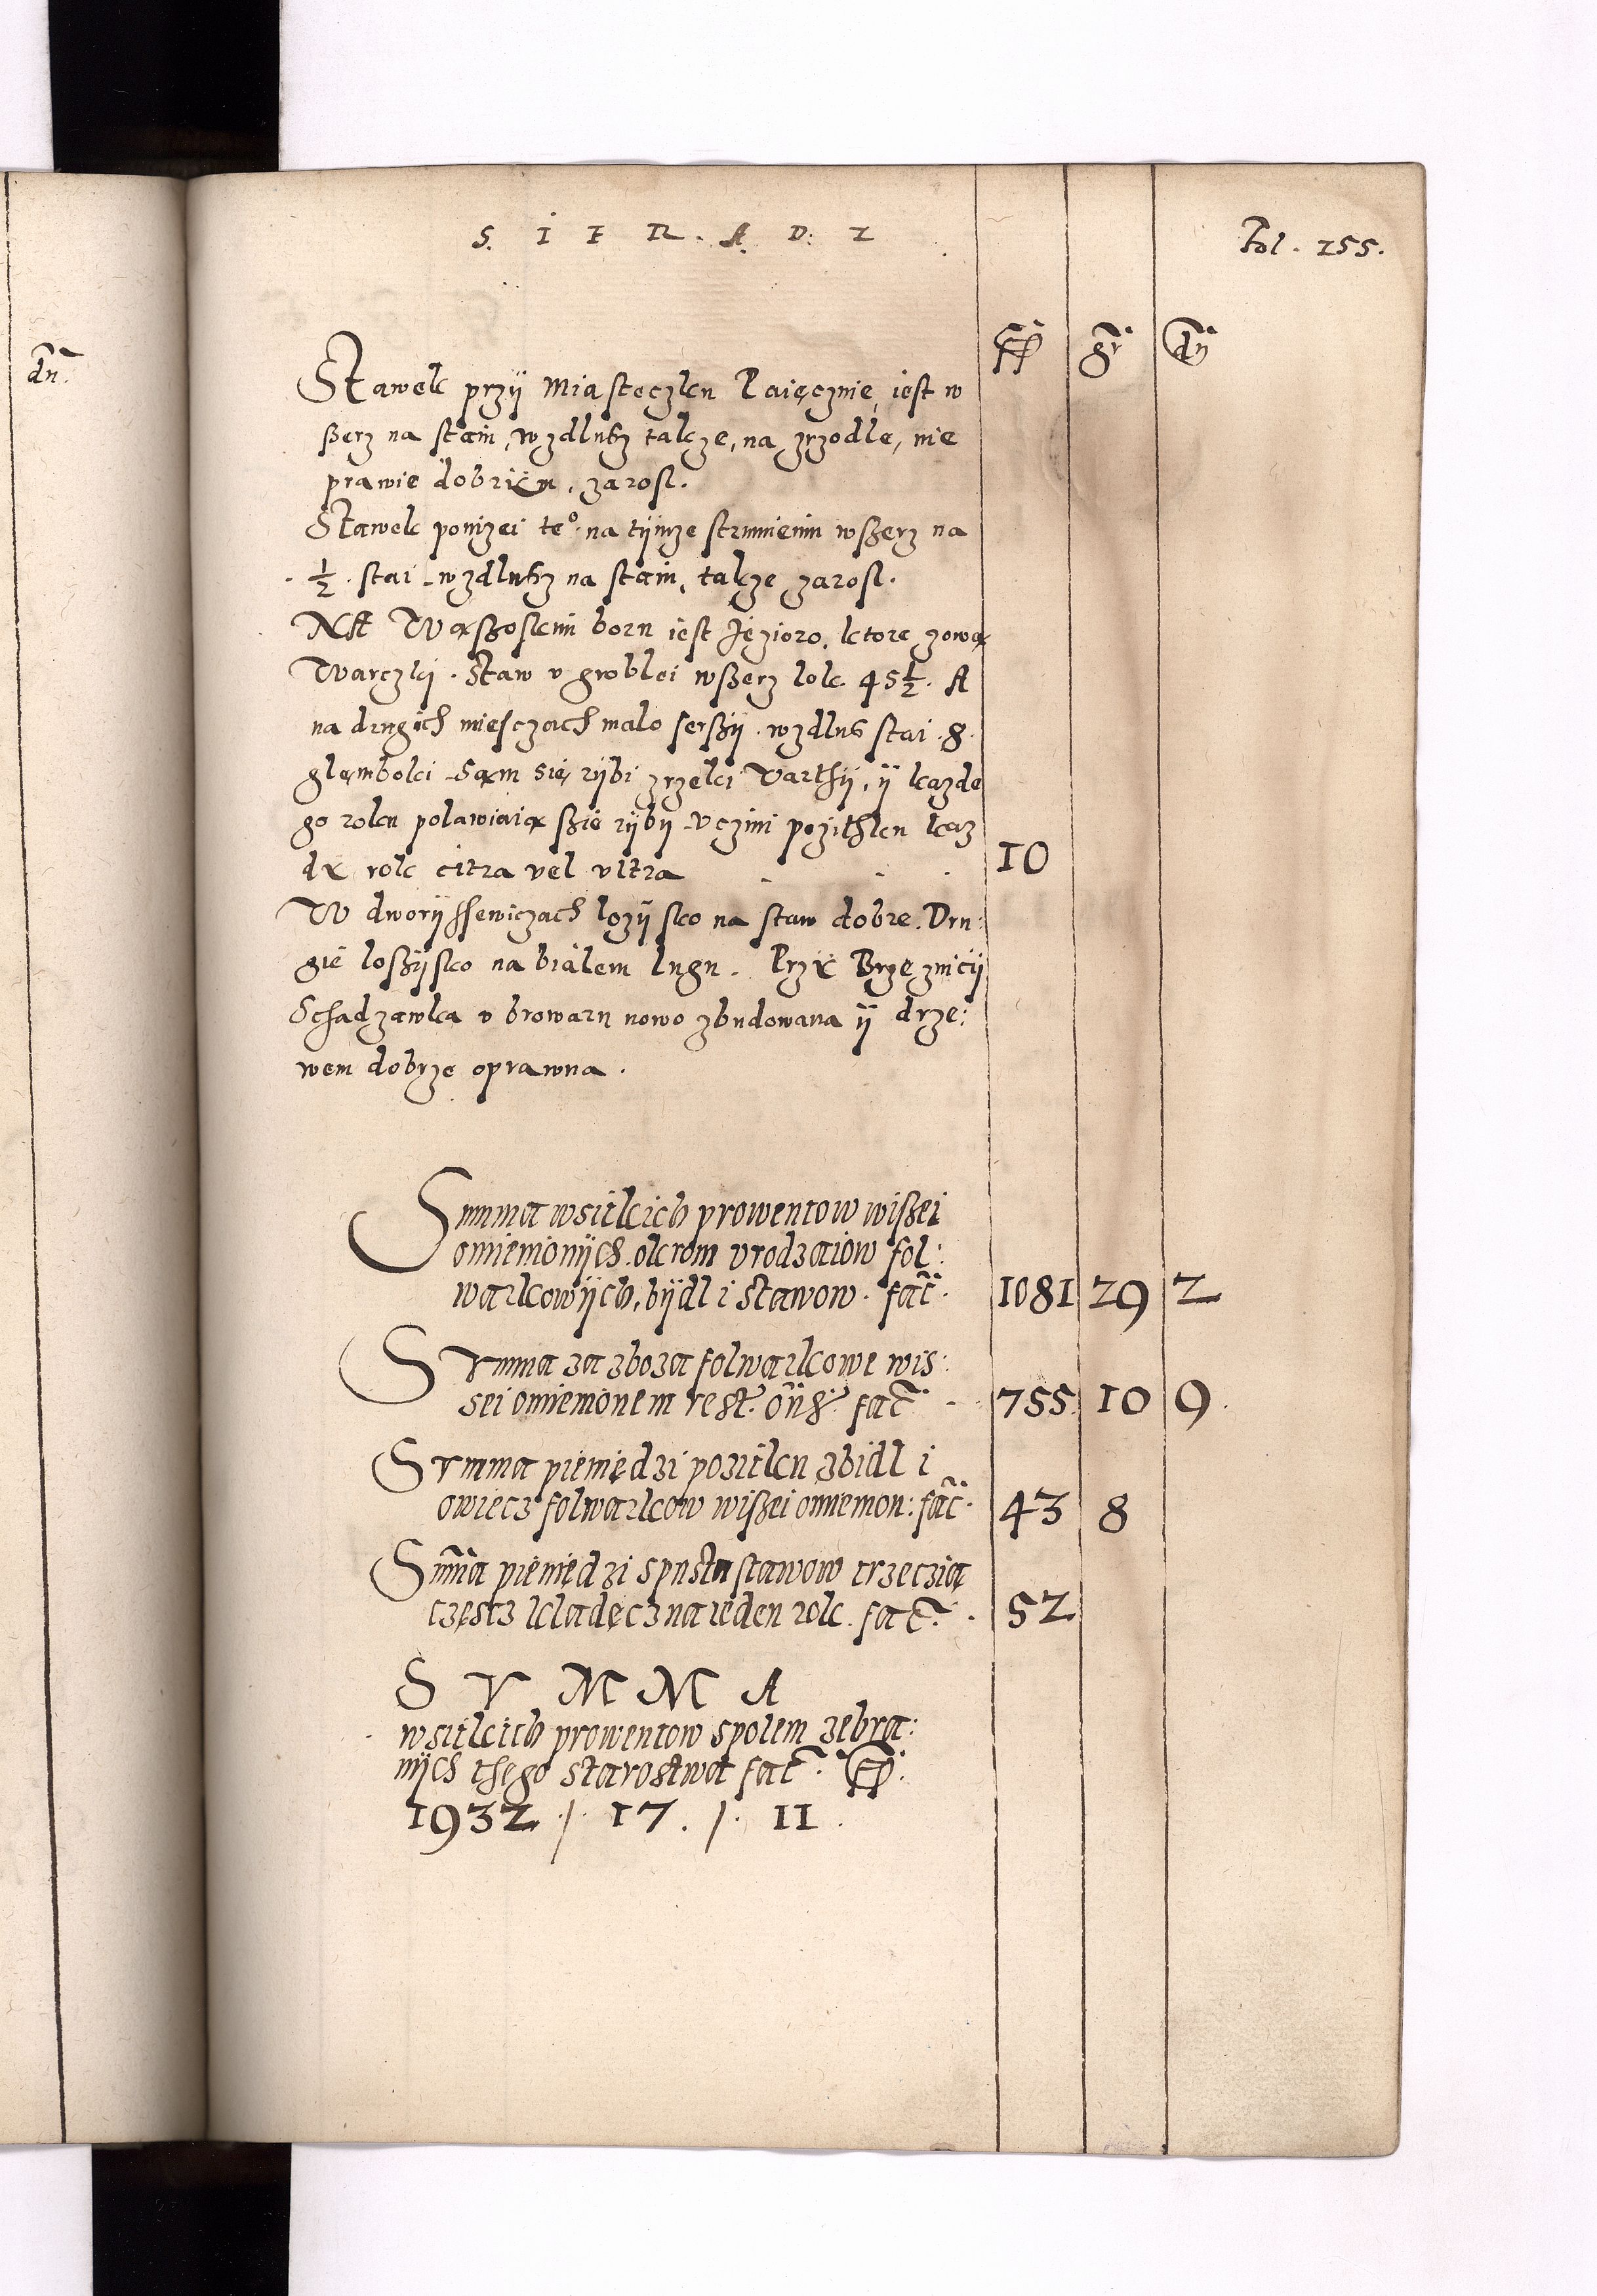 S. I E R. A. D: Z
Fol. 255.
fl gr dn
dn.
Stawek przÿ Miasteczku Paięcznie, iest w
szerz na stain, wzdlusz takze, na zrzodle, nie
prawie dobrim, zarosl.
Stawek ponizei te° na tÿmze strumieniu wszerz na
½ stai wzdlusz na stain, takze zarosl.
NA Wąszoskim boru iest Jezioro, ktore zową
Warczki. Staw v groblei wszerz lok. 45½. A
na drugich miesczach malo serszÿ wzdlus stai 8.
glęmboki Sąm się rÿbi zrzeki Varthÿ, ÿ kazde
go roku polawiaią szie rÿbÿ Vczini pozithku kaz
dÿ rok citra vel vltra 10
W dworÿssewiczach lozÿsko na staw dobre. Dru:
gie loszÿsko na bialem lugu. Przÿ Brzeznicÿ
Schadzawka v browaru nowo zbudowana ÿ drze:
wem dobrze oprawna.
Summa wsitkich prowentow wiszei
omienionÿch okrom vrodzaiow fol:
warkowÿch, bÿdl i stawow. fac̃. 1081 29 2
Svmma za zboza folwarkowe wis:
sei omienionem fac̃. 755. 10 9.
Svmma pieniędzi pozitku zbidl i
owiecz folwarkow wiszei omiemon: fac̃. 43 8
Sum̃a pieniędzi spustu stawow trzeczią
częstz kladęcz na ieden rok. fac̃. 52
S V M M A
wsitkich prowentow spolem zebra:
nÿch thego starostwa fac̃. fl.
1932 /. 17. /. 11.